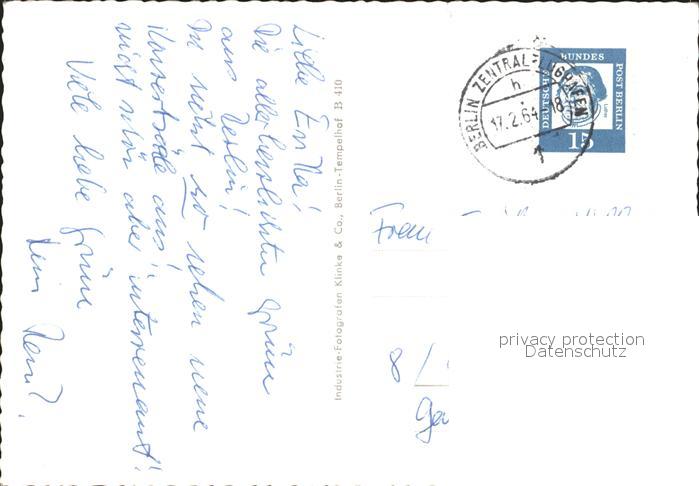 Liebe Erika!
Die allerherzlichsten Grüße
aus Berlin!
Du siehst so sehen neue
aus!
nicht schön aber interessant!
Viele liebe Grüße
Dein
Industrie-Fotografen Klinke & Co., Berlin-Tempelhof B 410
BERLIN ZENTRALFLUGHAFEN
h
17.2.64-18
DEUTSCHE BUNDESPOST BERLIN
Luther
15
Frau
privacy protection
Datenschutz